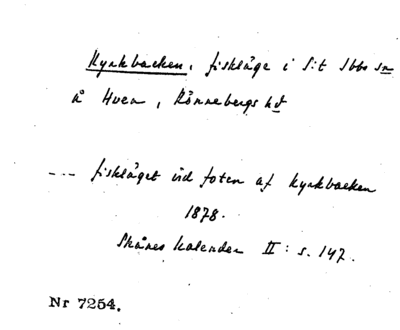 Kyrkbacken, fiskläge i S:t Ibbs sn
å Hven, Rönnebergs hd
--- fiskläget vid foten af Kyrkbacken
1878.
Skånes kalender II: s. 147.
Nr 7254.